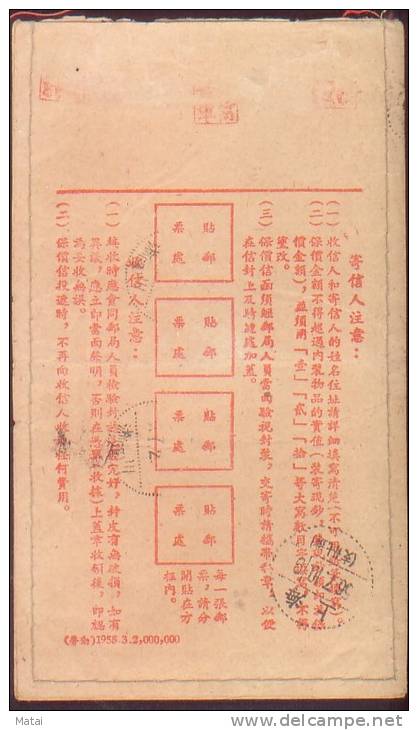 寄信人注意：
(一)收信人和寄信人的姓名住址請詳細填寫清楚(不可
(二)保價金額不得超過內裝物品的實值(裝寄現鈔，
價金額)，並須用「壹」「貳」「拾」等大寫數目字
塗改。
(三)保價信函須經郵局人員當面驗視封裝，交寄時請攜帶印章，以便
在信封上及騎縫處加蓋。
貼郵票處
貼郵票處
貼郵票處
貼郵票處
每一張郵
票，請分
開貼在方
框內。
收信人注意：
(一)接收時應會同郵局人員檢驗封誌是否完好，封皮有無破損，如有
異議，應立即當面發明，否則在憑單(收據)上蓋章收領後，即認
為妥收無誤。
(二)保價信投遞時，不再向收信人收取任何費用。
(勞動)1955.3.2,000,000
上海
Matai
delcampe.net